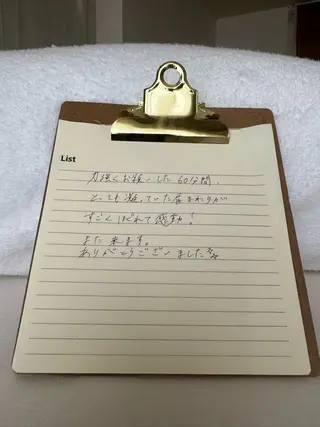 List
力強くお願いした60分間、
とっても凝っていた肩まわりが
すごくほぐれて感動！
また来ます。
ありがとうございました